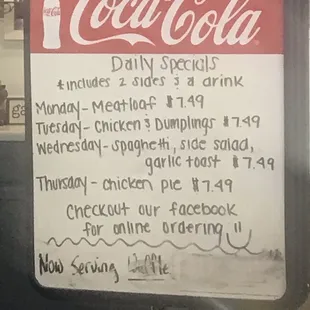 Coca-Cola
Daily Specials
*includes 2 sides & a drink
Monday - Meatloaf $7.49
Tuesday - Chicken & Dumplings $7.49
Wednesday - Spaghetti, side salad,
garlic toast $7.49
Thursday - chicken pie $7.49
Checkout our facebook
for online ordering !!
Now Serving